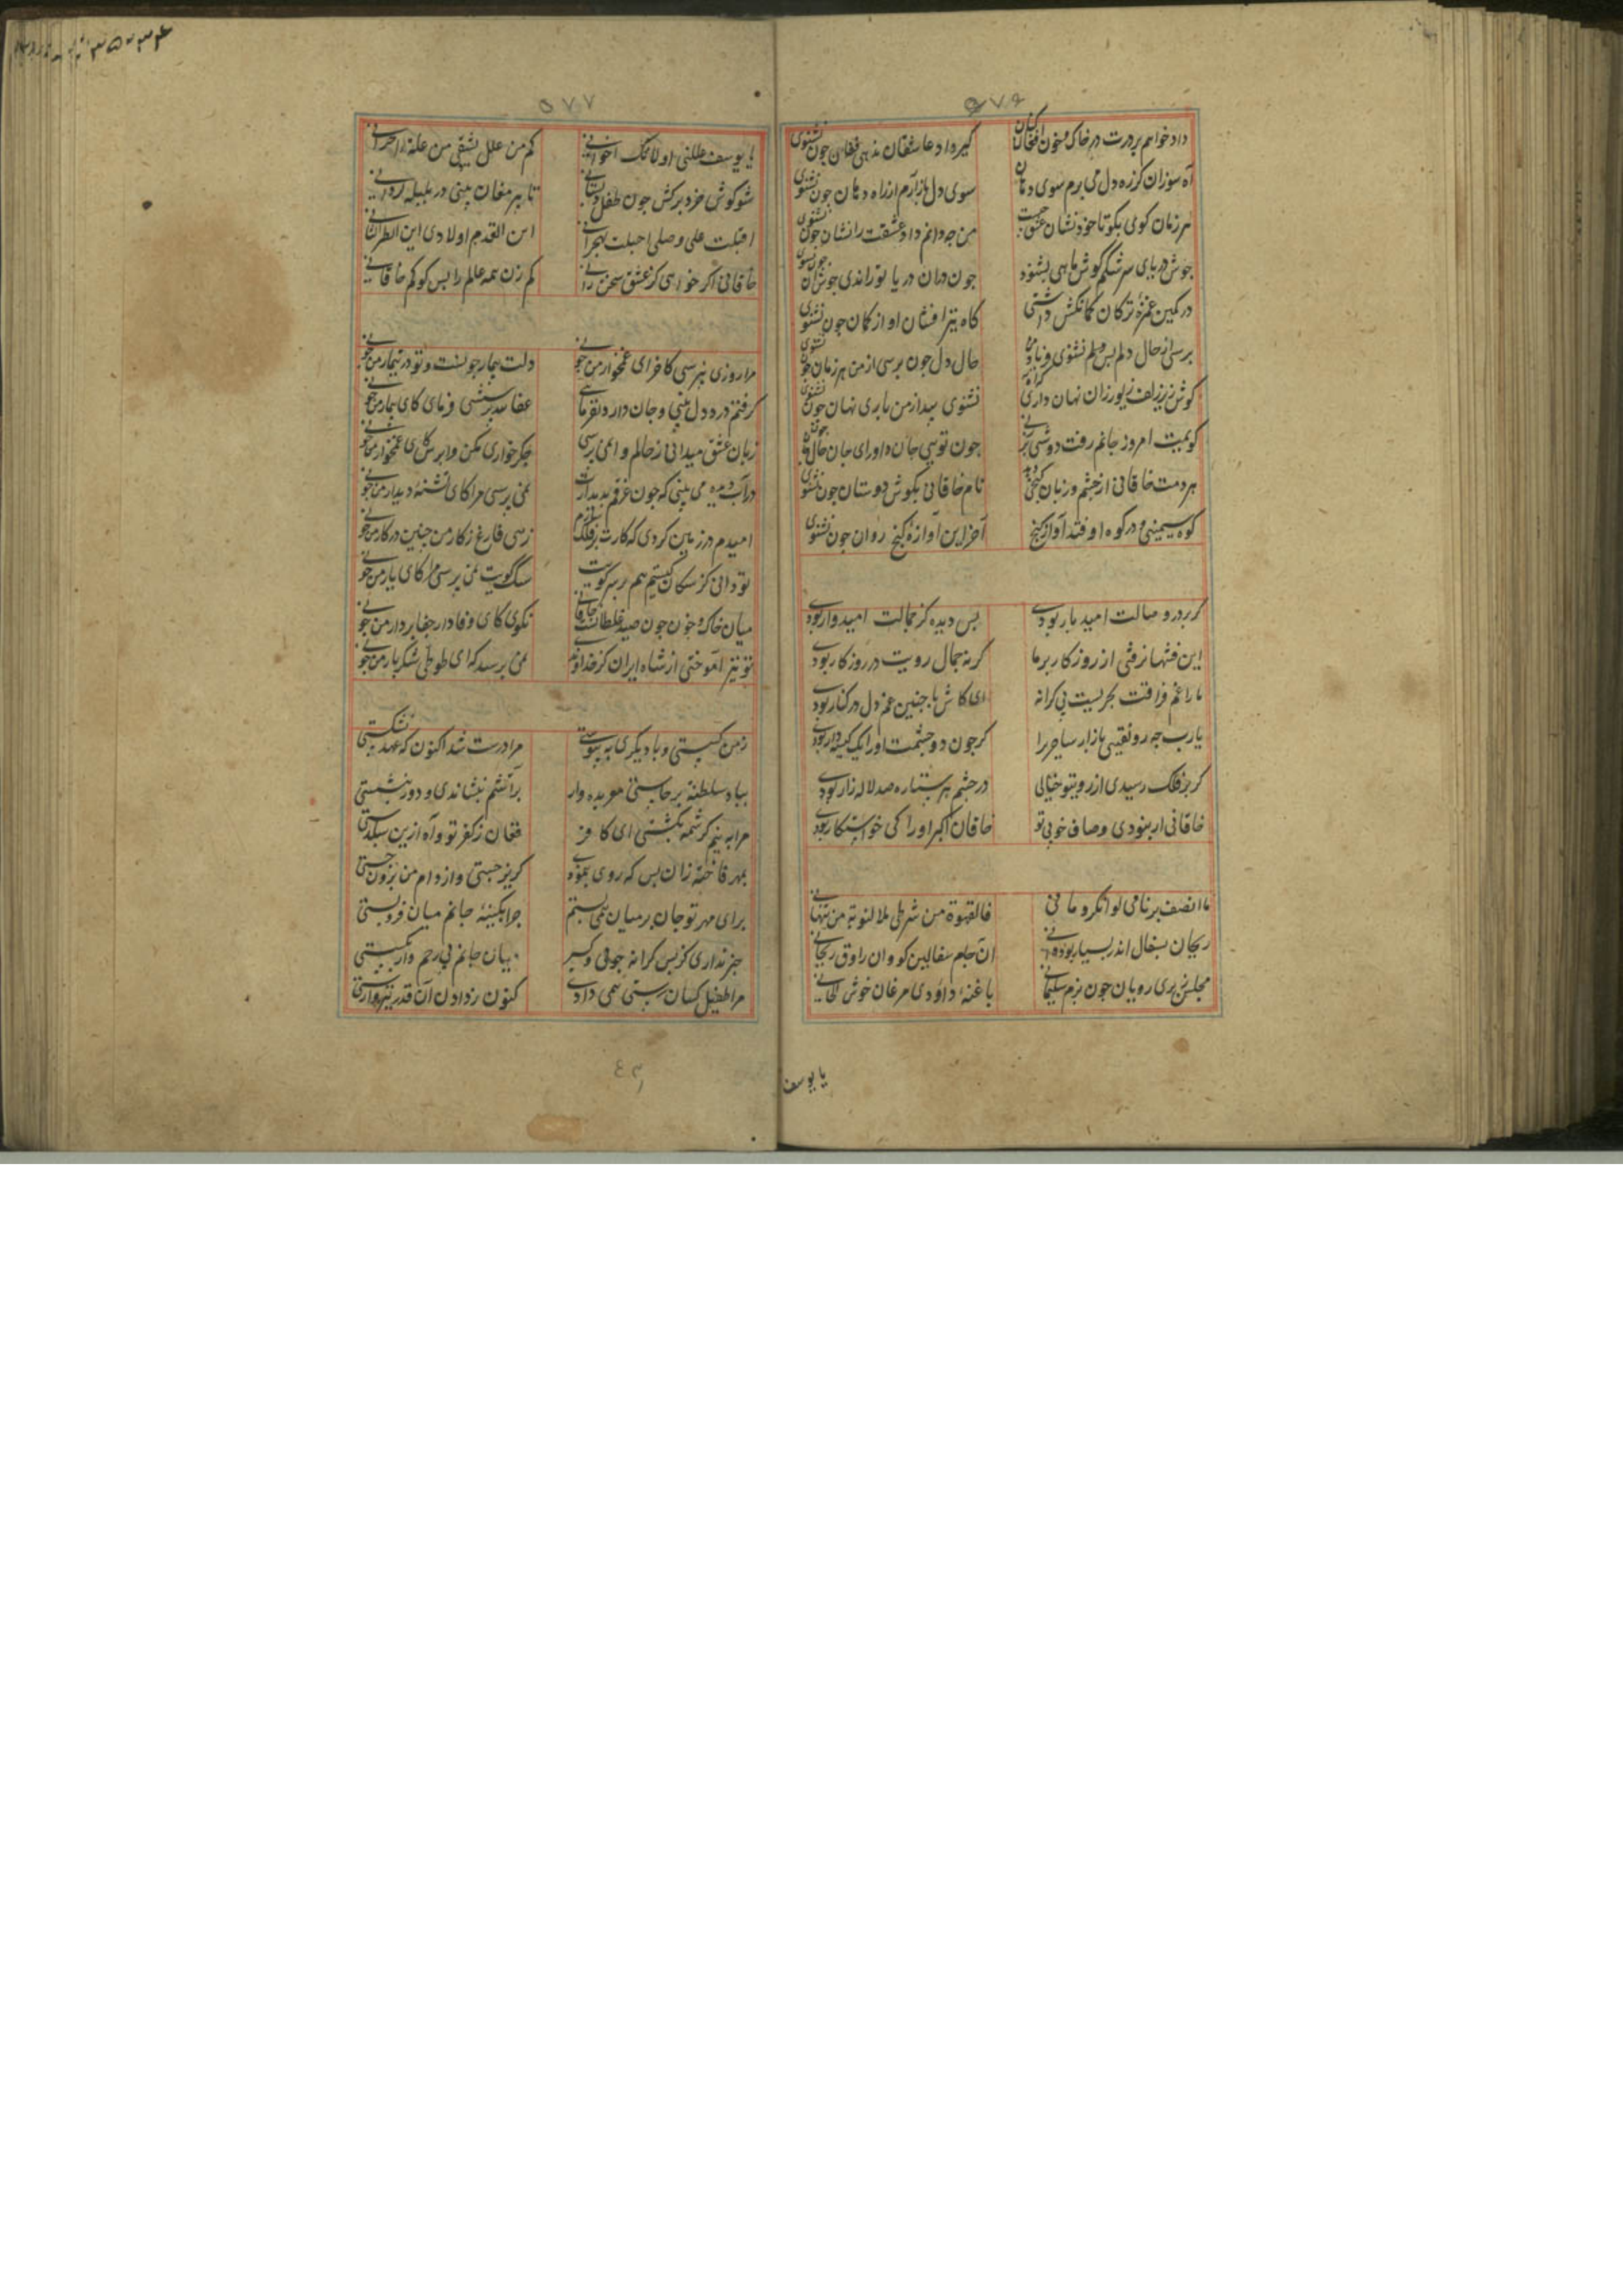 ۵۷۶
داد خواهم بر درت در خاک و خون افغان کنان گیر و داد عاشقان مذهبی فغان چون نشنوی
آه سوزان کز ره دل می برم سوی دهان سوی دل باز آرم از راه دهان چون نشنوی
هر زمان گوی بگو تا خود نشان عشق چیست من چه دانم داد عشقت را نشان چون نشنوی
جوش دریای سرشکم گوش ماهی بشنود چون دران دریا تو راندی جوش آن چون نشنوی
در کمین غمزه ترکان کمانکش داشتی گاه تیر افشان او از کمان چون نشنوی
پرسی از حال دلم پس دلم نشنوی فریاد من حال دل چون پرسی از من هر زمان چون نشنوی
گوش زیر زلف زیور زان نهان داری نشنوی بیداز من باری نهان چون نشنوی
گویمت امروز جانم رفت دوشی بر زنی چون تویی جان داور ای جان حال جان چون نشنوی
هر دمت خاقانی از چشم و زبان گنجی دهد نام خاقانی بگوش دوستان چون نشنوی
کوه سیمینی و در کوه اوفتد آواز گنج آخر این آوازه گنج روان چون نشنوی
گر بر در وصالت امید بار بودی بس دیده کز جمالت امیدوار بودی
این فتنها نرفتی از روزگار بر ما گر نه جمال رویت در روزگار بودی
ما را غم فراقت بحریست بی کرانه ای کاش با چنین غم دل در کنار بودی
یارب چه رونقیی بازار ساحر را گر چون دو چشمت او را یک کیسه دار بودی
گر بر فلک رسیدی از روی تو خیالی در چشم هر ستاره صد لاله زار بودی
خاقانی ار بنودی وصاف خوبی تو خاقان اکبر او را کی خواستگار بودی
ما انصف برنامی لو انکر و مافی فالقهوة من شرطی لا التوبة من شانی
ریحان بسفال اندر بسیار بود دانی آن جام سفالین کو وان راوق ریحانی
مجلس ز پری رویان چون بزم سلیمانی با غنه داودی مرغان خوش الحانی
یا یوسف
۵۷۷
یا یوسف عللنی اولامک اخوانی کم من علل یشفی من علة احزانی
شو گوش خرد برکش چون طفل دبستانی تا پیر مغان بینی در بلبله روانی
اقبلت علی وصلی احبلت لهجرانی این القدم اولادی این الطربانی
خاقانی اگر خواهی کز عشق سخن رانی کم زن همه عالم را پس گو کم خاقانی
مرا روزی نپرسی کاخر ای غمخوار من چونی دلت بیمار چونست و تو در تیمار من چونی
گرفتم درد دل بینی و جان دارو نفرمایی عفا بیمار پرسشی فرمای کای بیمار من چونی
زبان عشق میدانی ز حالم وا نمی پرسی جگر خواری مکن وا پرس کای غمخوار من چونی
در آب دیده می بینی که چون غرقم بدیدارت نمی پرسی مرا کای تشنه دیدار من چونی
امیدم در زمین کردی که کارت بر فلک سازم زهی فارغ ز کار من چنین در کار من چونی
تو دانی کز سگان کیستم هم بر سر کویت سگ کویت نمی پرسی مرا کای یار من چونی
میان خاک و خون چون صید غلطانست خاقانی نگوی کای وفادار جفا بردار من چونی
تو نیز آموختی از شاه ایران کز خداوندی نمی پرسد که ای طوطی شکر بار من چونی
ز من گسستی و با دیگری بپیوستی مرا درست شد اکنون که عهد بشکستی
بباد سلطنه برخاستی عربده وار بر آتشم بنشاندی و دور بنشستی
مرا به نیم کرشمه بکشتی ای کافر فغان ز کفر تو و آه ازین سبکدستی
بمهر فاخته زان پس که روی بنمودی گریز جستی و از دام من برون جستی
برای مهر تو جان بر میان همی بستم چرا بکینه جانم میان فرو بستی
خبر نداری کز پس کرانه جوی و کبر میان جانم بی رحم وار گسستی
مرا طفیل کسان پرسشی همی دادی کنون ز دادن آن قدر نیز وارستی